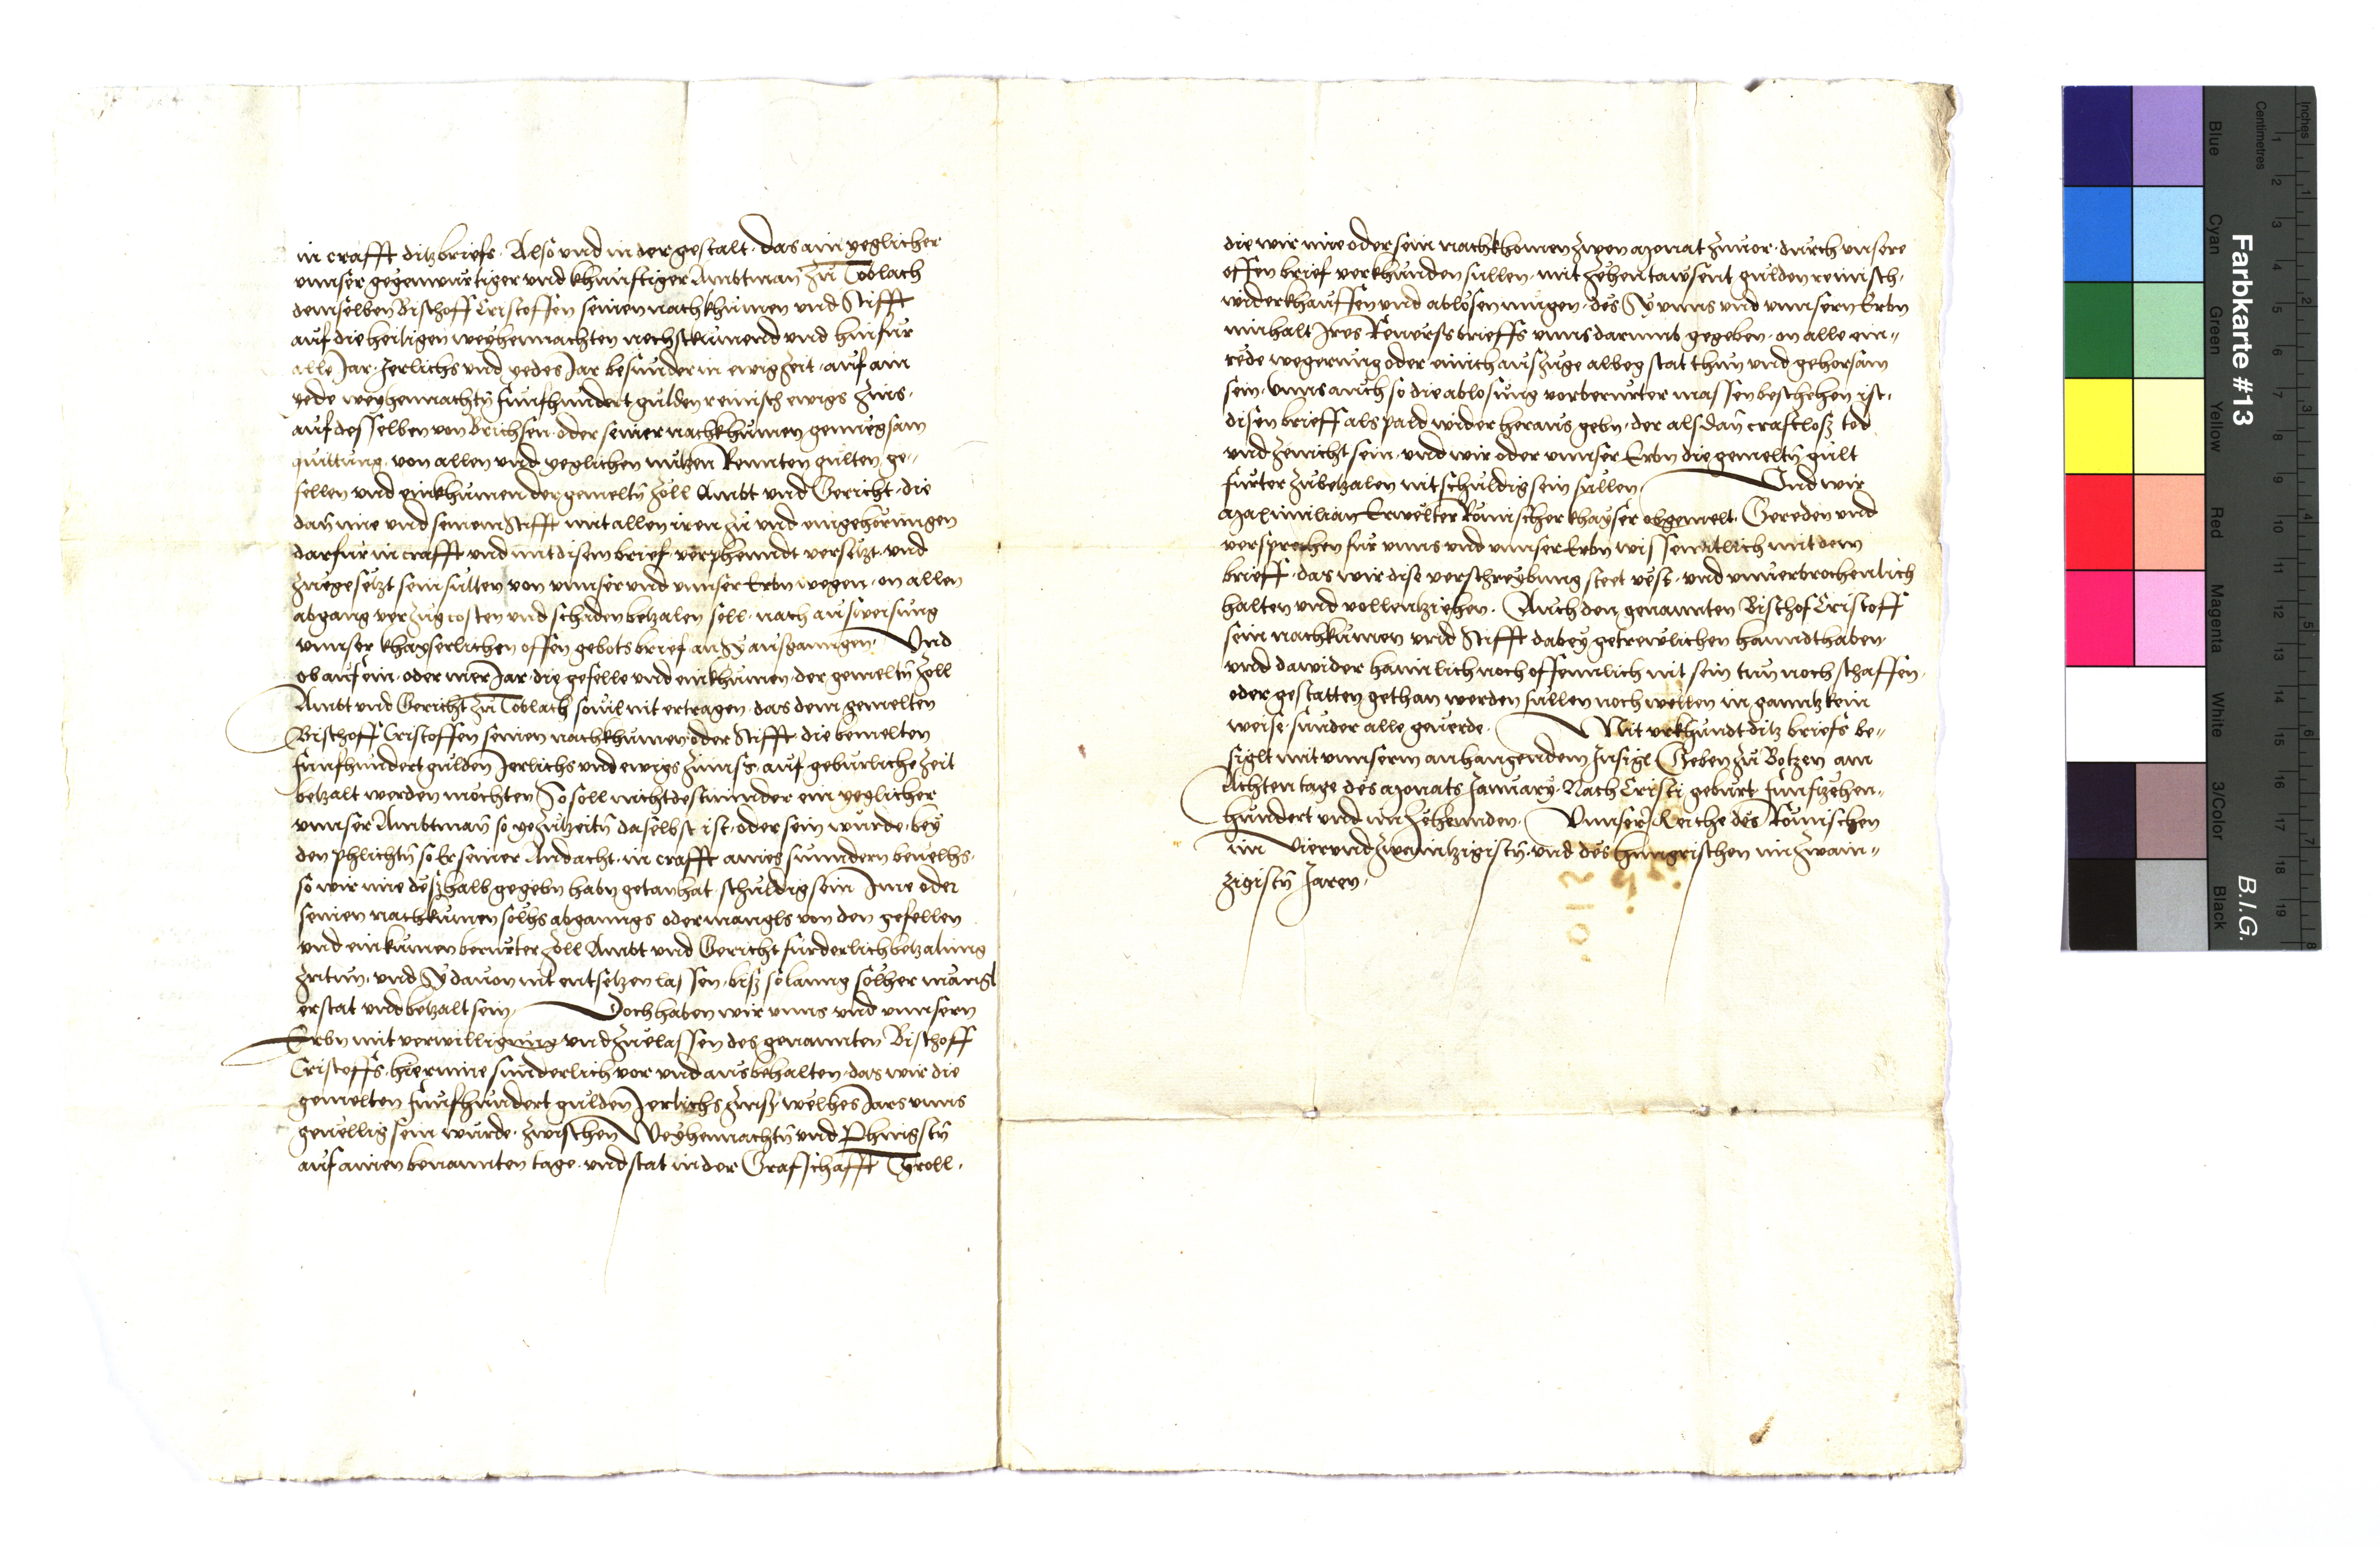 in crafft ditz briefs. Also und in der gestalt. das ain yeglicher
unnser gegenwurtiger und khunfftiger Ambtman zu Toblach
demselben Bischoff Cristoffen seinen nachkhumen und Stifft
auf die heiligen weyhennachten nechstkumend und hinfur
alle Jar. Jerlichs und yedes Jar besunder in ewig Zeit. auf ain
yede weyhennachtn funfhundert gulden reinisch ewigs Zins.
auf desselben von Brichsen. oder seiner nachkhumen genuegsam
quittung. von allen und yeglichen nutzen Rennten gulten, ge„
fellen und einkhumen der gemeltn Zoll Ambt und Gericht. die
dan ime und seinem Stifft mit allen iren zu und eingehorungen
darfur in crafft und mit disem brief verphenndt versetzt. und
zuegesetzt sein sullen von unnser und unnser Erbn wegen. on allen
abgang verzug costen und schaden betzalen soll. nach ausweisung
unnser khayserlichen offen gebotsbrief an Sy ausganngen. Und
ob auf ein. oder mer Jar. die gefelle und einkhumen. der gemeltn Zoll
Ambt und Gericht zu Toblach sovil nit ertragen. das dem gemelten
Bischoff Cristoffen seinen nachkhumen oder Stifft die bemelten
funfhundert gulden Jerlichs und ewigs Zinnss. auf geburliche Zeit
betzalt werden mochten So soll nichtdestminder ein yeglicher
unnser Ambtman so ye zutzeitn daselbst ist. oder sein wurde. bey
den phlichtn so Er seiner Andacht. in crafft aines sunndern bevelhs.
so wir ime deßhalb gegebn habn getan hat. schuldig sein Ime oder
seinen nachkumen solhs abganngs oder mangls von den gefellen
und einkumen berurter Zoll Ambt und Gericht furderlich betzalung
zutun. und Sy davon nit entsetzen lassen. biß solanng solher mangl
erstat und betzalt sein. Doch haben wir unns und unnsern
Erbn mit verwilligung und zuelassen des genannten Bischoff
Cristoffs. hierinne sunderlich vor und ausbehalten. das wir die
gemelten funfhundert gulden Jerlichs Zinss. welhes Jars unns
gevellig sein wurde. zwischen Weyhennachtn und Phingstn
auf ainen benannten tage. und stat in der Grafschafft Tyroll.
die wir ime oder sein nachkhomen zwen Monat zuvor. durch unsere
offen brief verkhunden sullen. mit zehentawsent gulden reinisch.
widerkhauffen und ablosen mugen. des Sy unns und unnsern Erbn
innhalt Jres Reversbrieffs unns darumb gegeben. on alle ein„
rede wegerung oder einich auszuge albeg stat thun und gehorsam
sein. Unns auch so die ablosung vorberurter massen beschehen ist.
disen brieff als pald wider heraus gebn. der alsdan crafftloß tod
und zenicht sein. und wir oder unnser Erbn die gemeltn gult
further zubetzalen nit schuldig sein sullen. Und wir
Maximilian Erwelter Romischer khayser obgemelt. Gereden und
versprechen fur unns und unnser Erbn wissenntlich mit dem
brieff. das wir dise verschreybung steet vest. und unverbrochenlich
halten und vollentziehen. Auch den genannten Bischof Cristoff
sein nachkumen und Stifft dabey getrewlichen hanndthaben
und dawider haimlich noch offennlich nit sein tun noch schaffen.
oder gestatten gethan werden sullen noch wellen in ganntz kein
weise. sunder alle geverde. Mit urkhundt ditz briefs be„
siglt mit unnserm anhangendem Insigl Geben zu Botzen am
Achten tage des Monats January. Nach Cristi geburt funfzehen„
hundert und im zehennden. Unnser Reiche des Romischen
im Vierundzwaintzigistn. und des hungrischen im zwain„
zigistn Jaren.
Farbkarte #13
B.I.G.
Inches
Centimetres
Blue
Cyan
Green
Yellow
Red
Magenta
White
3/Color
Black